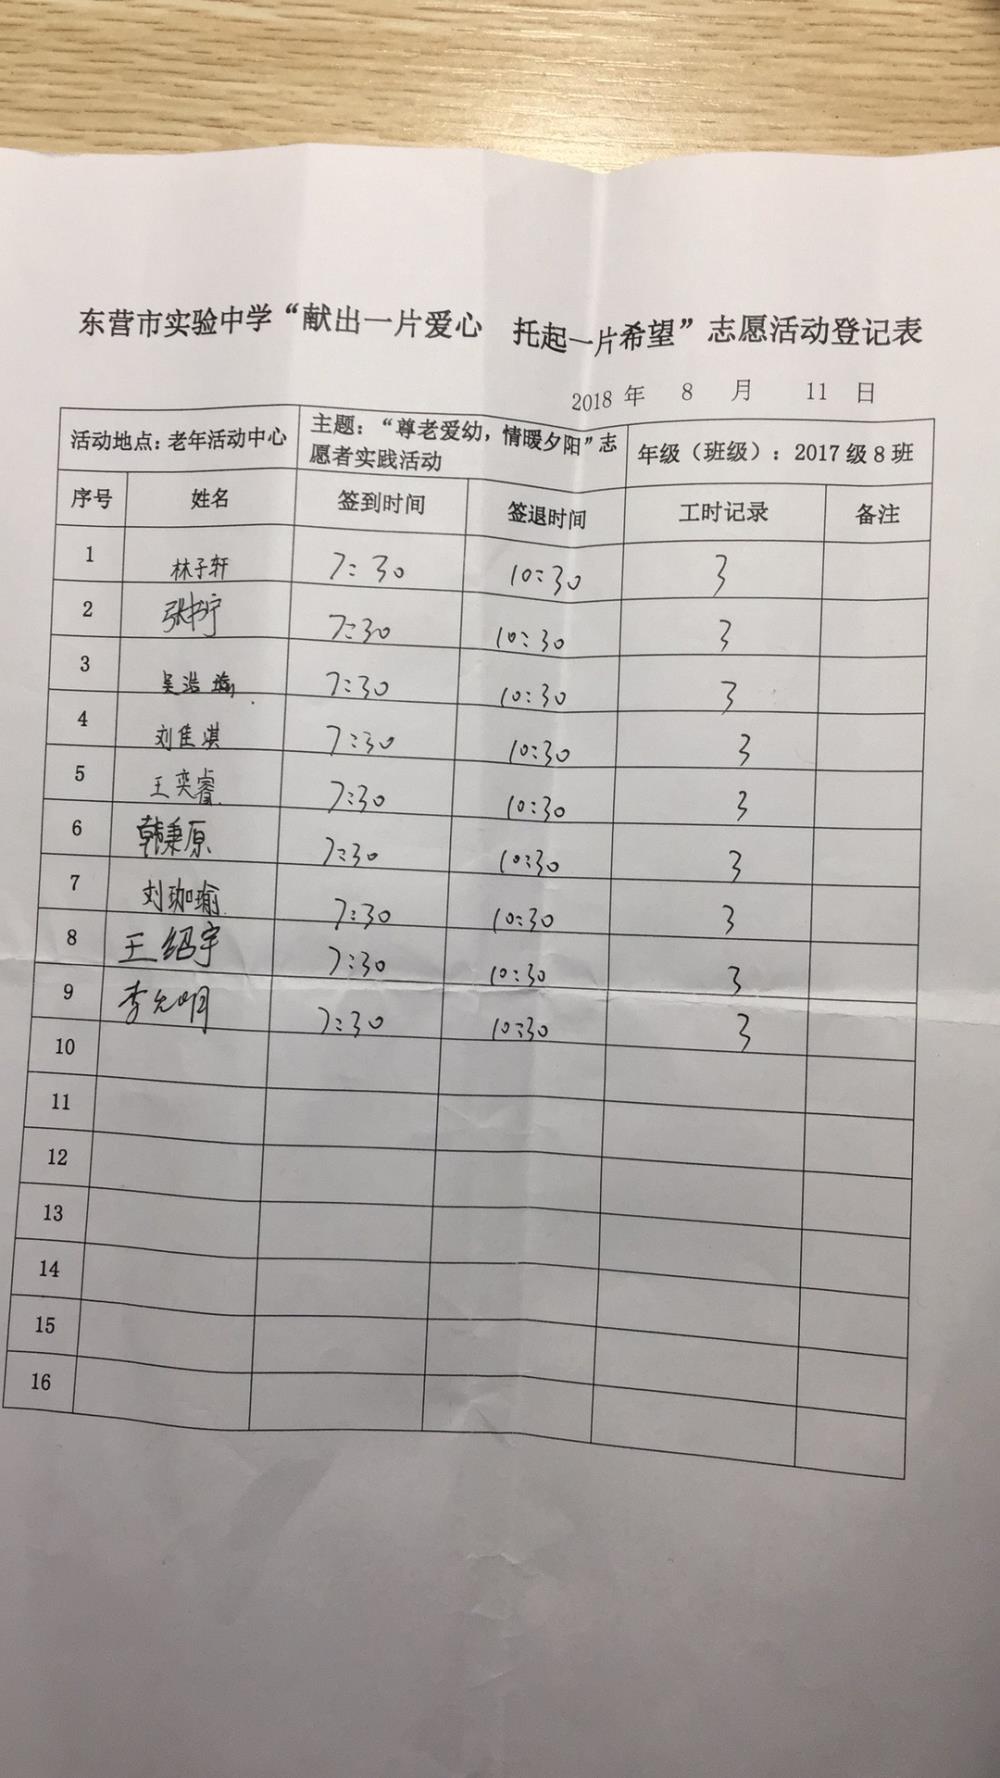 东营市实验中学“献出一片爱心 托起一片希望”志愿活动登记表
2018 年 8 月 11 日
活动地点：老年活动中心 主题：“尊老爱幼，情暖夕阳”志 年级（班级）：2017 级 8 班
愿者实践活动
序号 姓名 签到时间 签退时间 工时记录 备注
1 林子轩 7:30 10:30 3
2 张书宁 7:30 10:30 3
3 吴浩瑜 7:30 10:30 3
4 刘佳淇 7:30 10:30 3
5 王奕睿 7:30 10:30 3
6 韩秉原 7:30 10:30 3
7 刘珈瑜 7:30 10:30 3
8 王绍宇 7:30 10:30 3
9 李允明 7:30 10:30 3
10
11
12
13
14
15
16